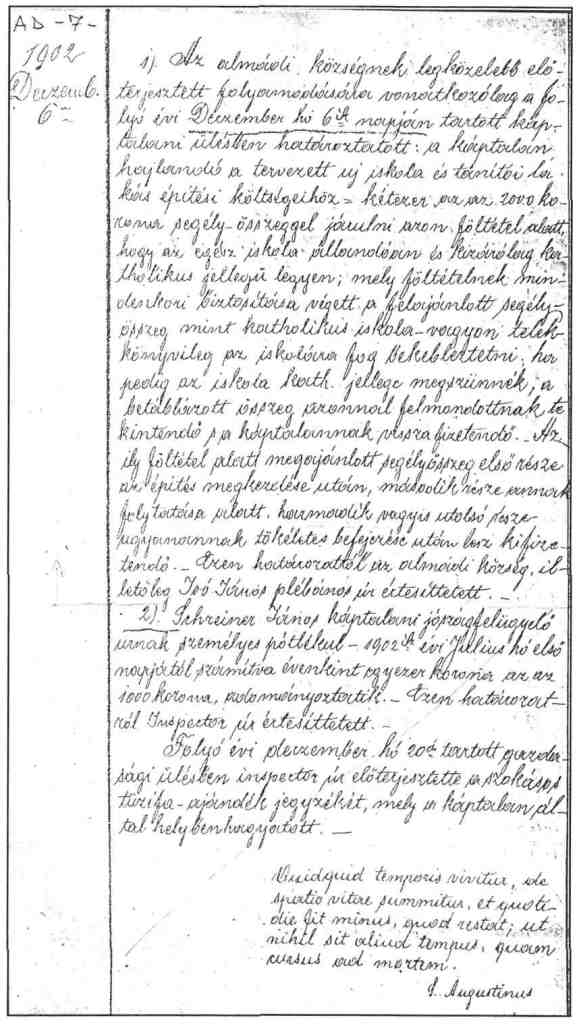 AD-7-
1902
Decemb.
6-án
1). Az almádi községnek legközelebb elő-
terjesztett folyamodására vonatkozólag a fo-
lyó évi December hó 6ik napján tartott káp-
talani ülésben határoztatott: a káptalan
hajlandó a tervezett uj iskola és tanítói la-
kás épitési költségeihöz = kétezer az az 2000 ko-
rona segély-összeggel járulni azon föltétel alatt,
hogy az egész iskola állandóan és kizárólag ka-
tholikus jellegű legyen; mely föltételnek min-
denkori biztosítása végett a felajánlott segély-
összeg mint katholikus iskola-vagyon telek-
könyvileg az iskolára fog bekebleztetni, ha
pedig az iskola kath. jellege megszünnék, a
betáblázott összeg azonnal felmondottnak te-
kintendő s a káptalannak visszafizetendő. - Az
ily föltétel alatt megajánlott segélyösszeg első része
az épités megkezdése után, második része annak
folytatása alatt, harmadik vagyis utolsó része
ugyanannak tökéletes befejezése után lesz kifize-
tendő. - Ezen határozatról az almádi község, il-
letőleg Ivó János plébános úr értesíttetett. -
2). Schreiner János káptalani jószágfelügyelő
urnak személyes pótlékul - 1902ik évi Julius hó első
napjától számítva évenkint egyezer korona az az
1000 korona, adományoztatik. - Ezen határozat-
ról Inspector úr értesíttetett. -
Folyó évi deczember hó 20án tartott gazda-
sági ülésben inspector úr előterjesztette a szokásos
tüzifa-ajándék jegyzékét, mely a káptalan ál-
tal helybenhagyatott. -
Quidquid temporis vivitur, de
spatio vitae summitur, et quoti-
die fit minus, quod restat; ut
nihil sit aliud tempus, quam
cursus ad mortem.
S. Augustinus